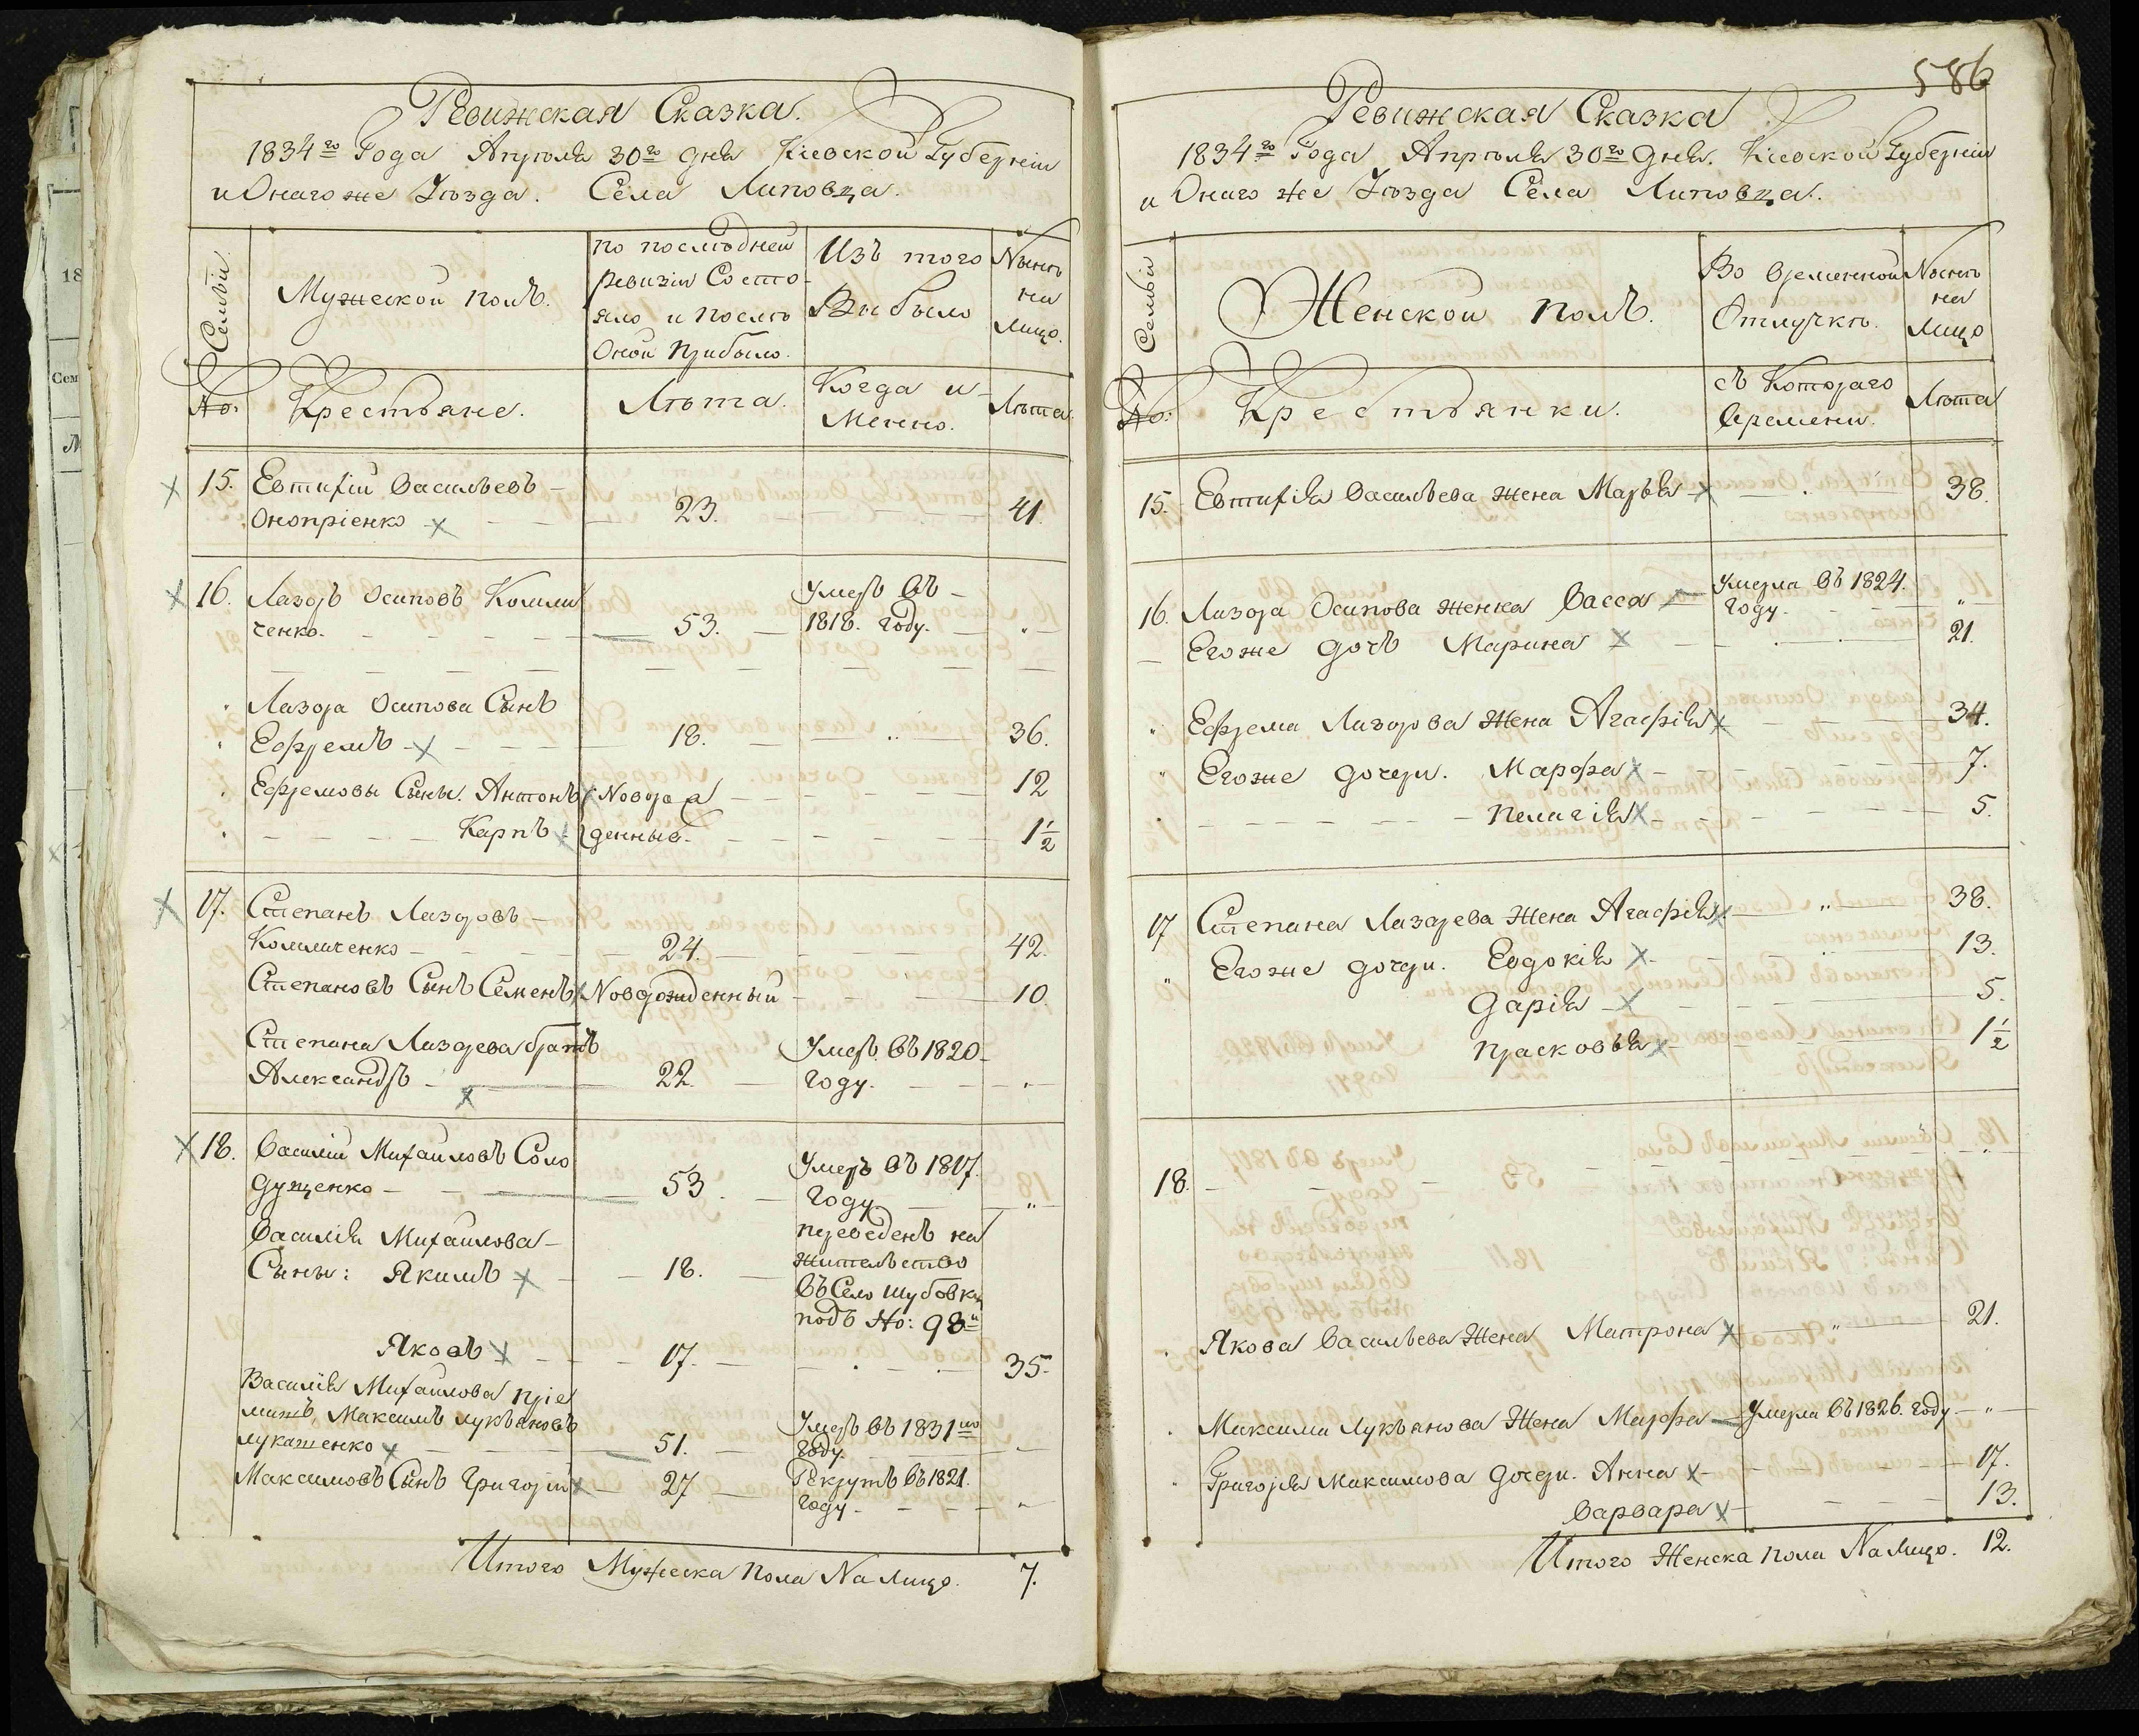 Ревижская Сказка.
1834го Года Апреля 30го дня Кіевской Губерніи
и Онаго же Уѣзда. Села Липовца.
Семьи
Мужеской полъ.
по послѣдней
ревизіи Состо-
яло и послѣ
Оной прибыло.
Изъ того
Выбыло
Нынѣ
на
лицо.
No:
Крестьяне.
Лѣта.
Когда и-
Менно.
Лѣта.
15. Евтихій Васильевъ -
Оноприенко 23. 41.
16. Лазоръ Осиповъ Комли
Умеръ въ -
ченко. 53. 1818. году.
Лазора Осипова Сынъ
Ефремъ 18. 36.
Ефремовы Сыны. Антонъ Новоро 12
Карпъ жденные. 1 1/2
17. Степанъ Лазоровъ -
24. 42.
Степановъ Сынъ Семенъ Новорожденный 10.
Степана Лазарева братъ Умеръ въ 1820-
Александръ 22. году.
18. Василій Михайловъ Соло Умеръ въ 1817.
дущенко 53. году
Василія Михайлова - переведенъ на
Сыны: Якимъ 18. жительство
въ Село Шубовку
подъ No: 98м
Яковъ 17. 35.
Василія Михайлова пріе
мышъ Максимъ Лукьяновъ Умеръ въ 1831мъ
Лукашенко 51. году.
Максимовъ Сынъ Григорій 27 Рекрутъ въ 1821.
году
Итого Мужеска пола На лицо. 7.
586
Ревижская Сказка
1834го Года Апреля 30го дня. Кіевской Губерніи
и Онаго же Уѣзда Села Липовца.
Семьи
Женской полъ.
Во временной
Отлучкѣ.
Нынѣ
на
лицо
No:
Крестьянки.
съ Котораго
времени.
Лѣта
15. Евтихія Васильева жена Марья 38.
16. Лазора Осипова женка Васса Умерла въ 1824.
году.
Его же дочь Марина 21.
Ефрема Лазорова жена Агафія 34.
Его же дочери. Марфа 7.
Пелагія 5.
17 Степана Лазарева жена Агафія 38.
Его же дочери. Евдокія 13.
Дарія 5.
Прасковья 1 1/2
18.
Якова Васильева жена Матрона 21.
Максима Лукьянова жена Марфа Умерла въ 1826. году
Григорія Максимова дочери. Анна 17.
Варвара 13.
Итого Женска пола На лицо. 12.